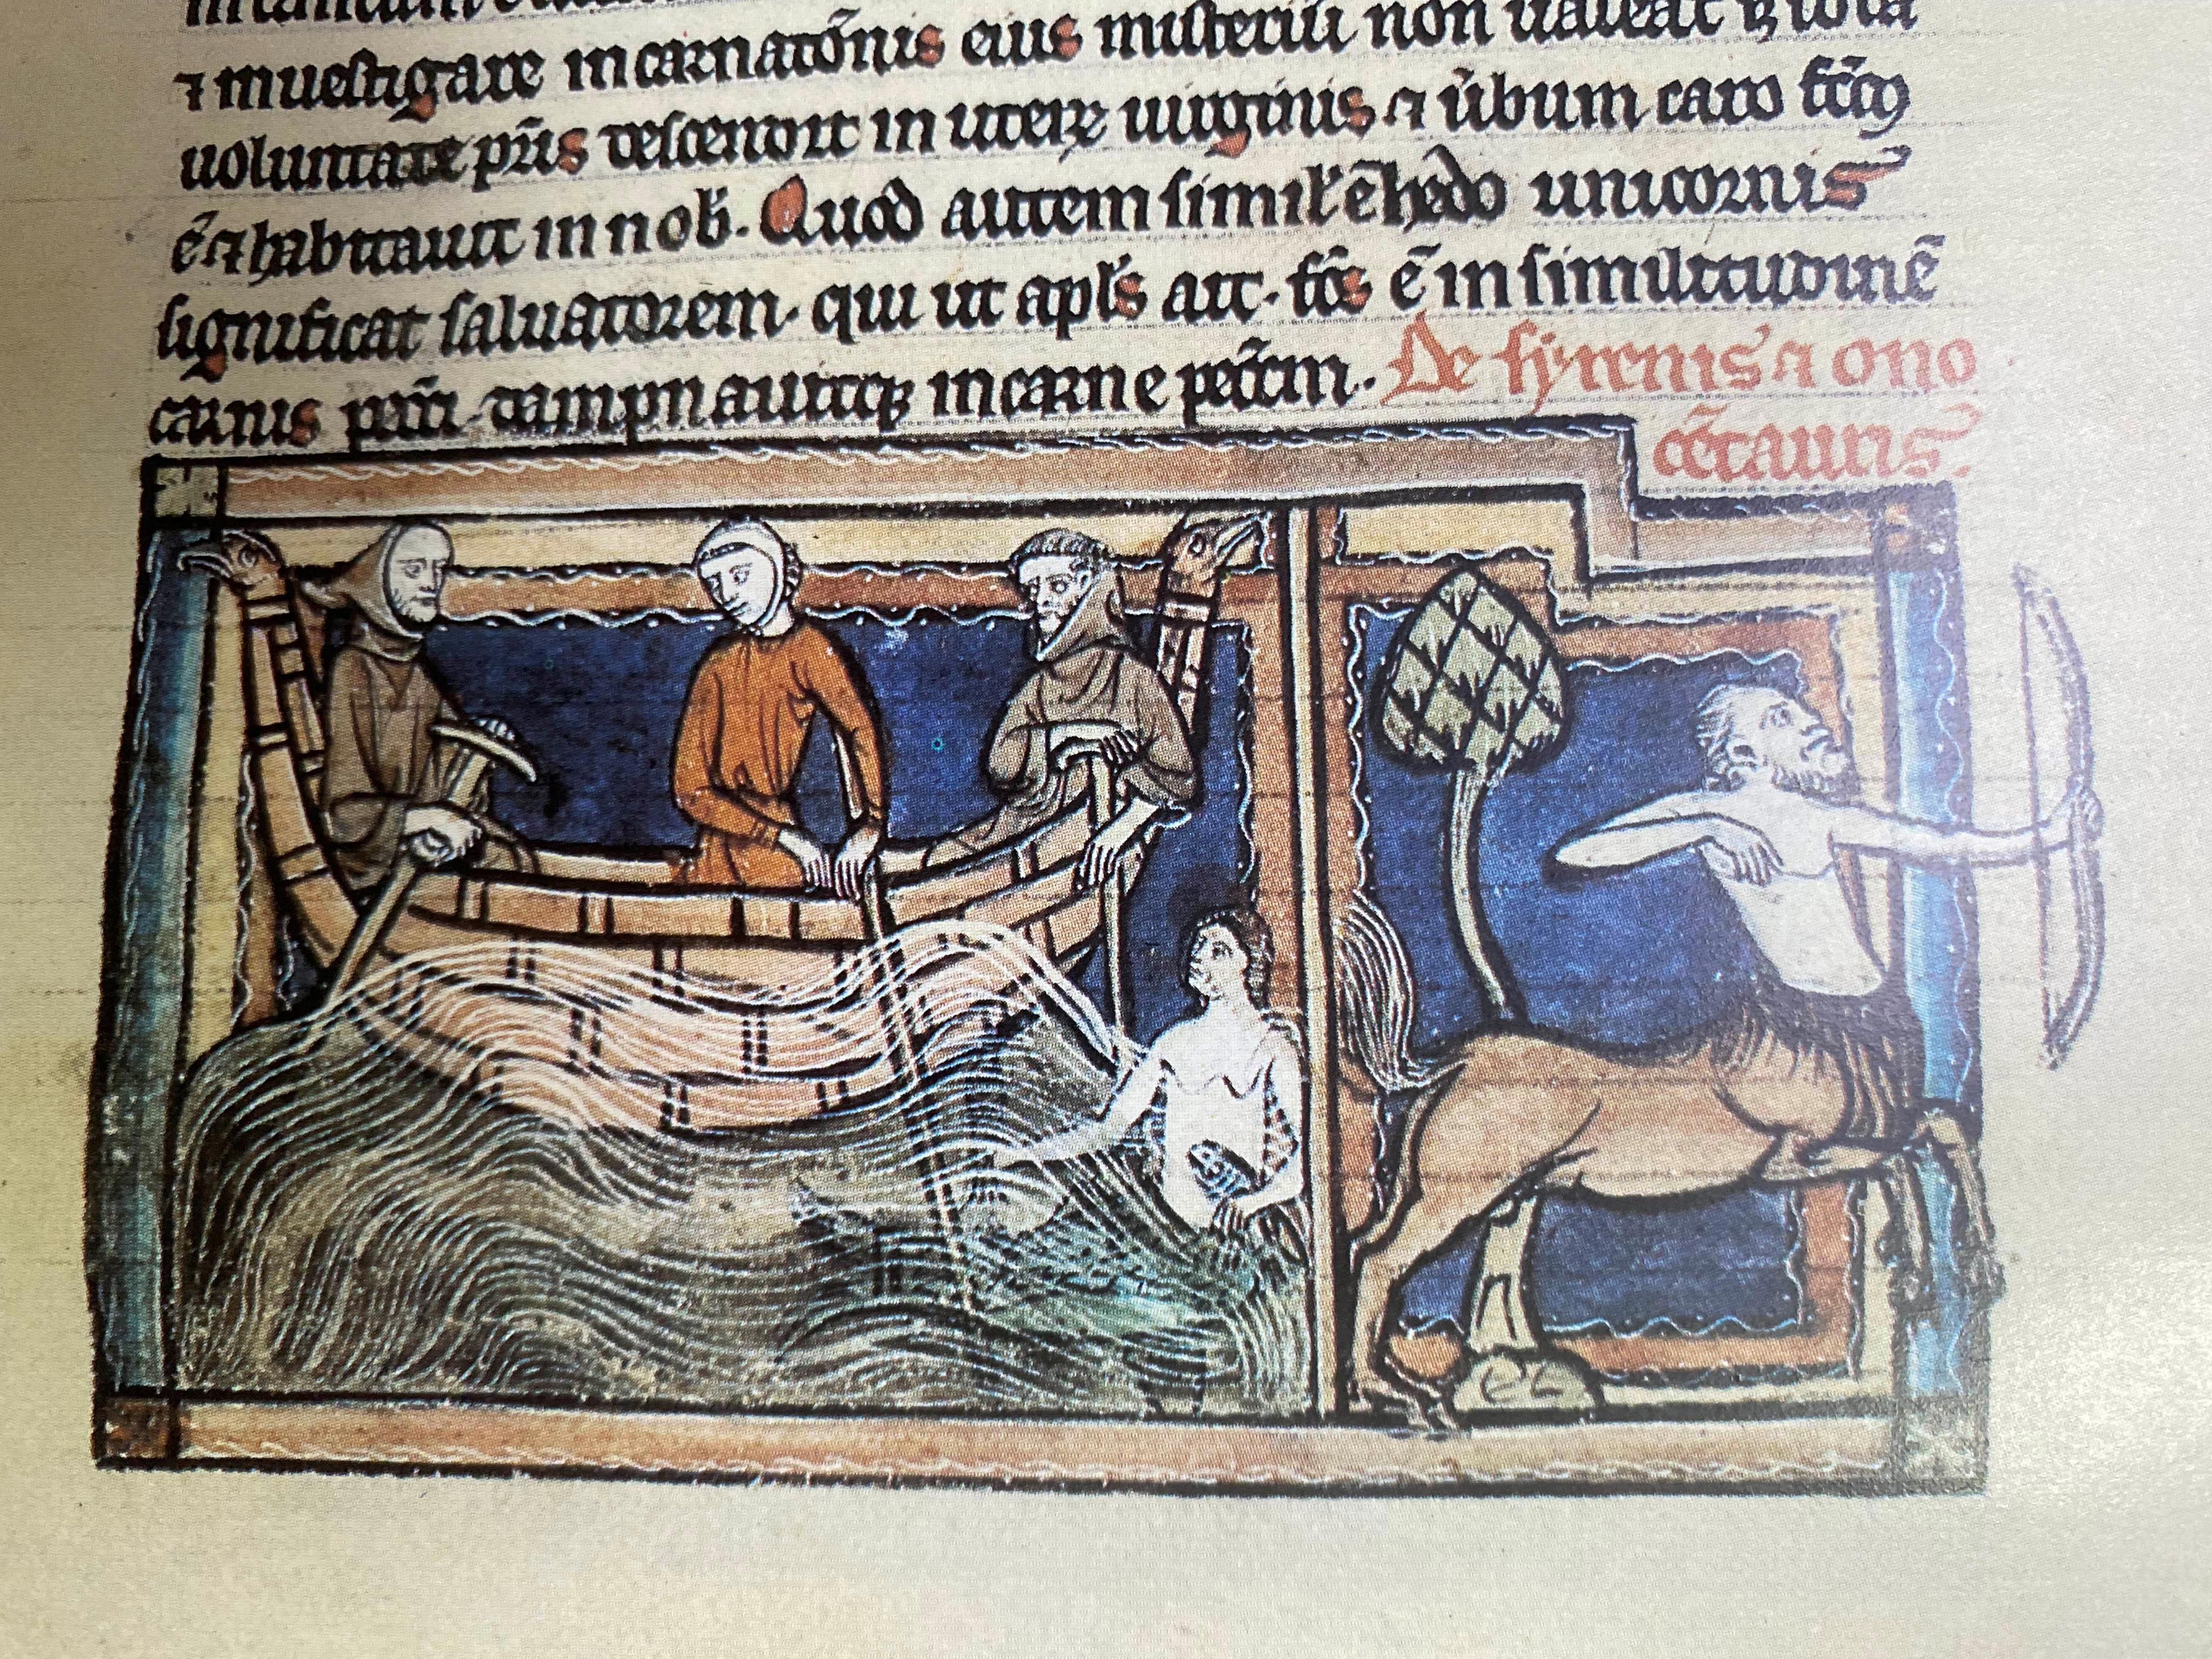 ⁊ inuestigare incarnatōnis eius misteriū non ualeat ⁊ tota
uoluntate pr̄is descendit in uterū uirginis ⁊ ūbum caro fc̄m
ē ⁊ habitauit in nob̄. Quod autem simil̄ ē hedo unicornis
significat saluatorem. qui ut apl̄s ait. fc̄s ē in similitudinē
carnis pcc̄i. dampnauitq; in carne pcc̄m. De syrenis ⁊ ono
cētauris.